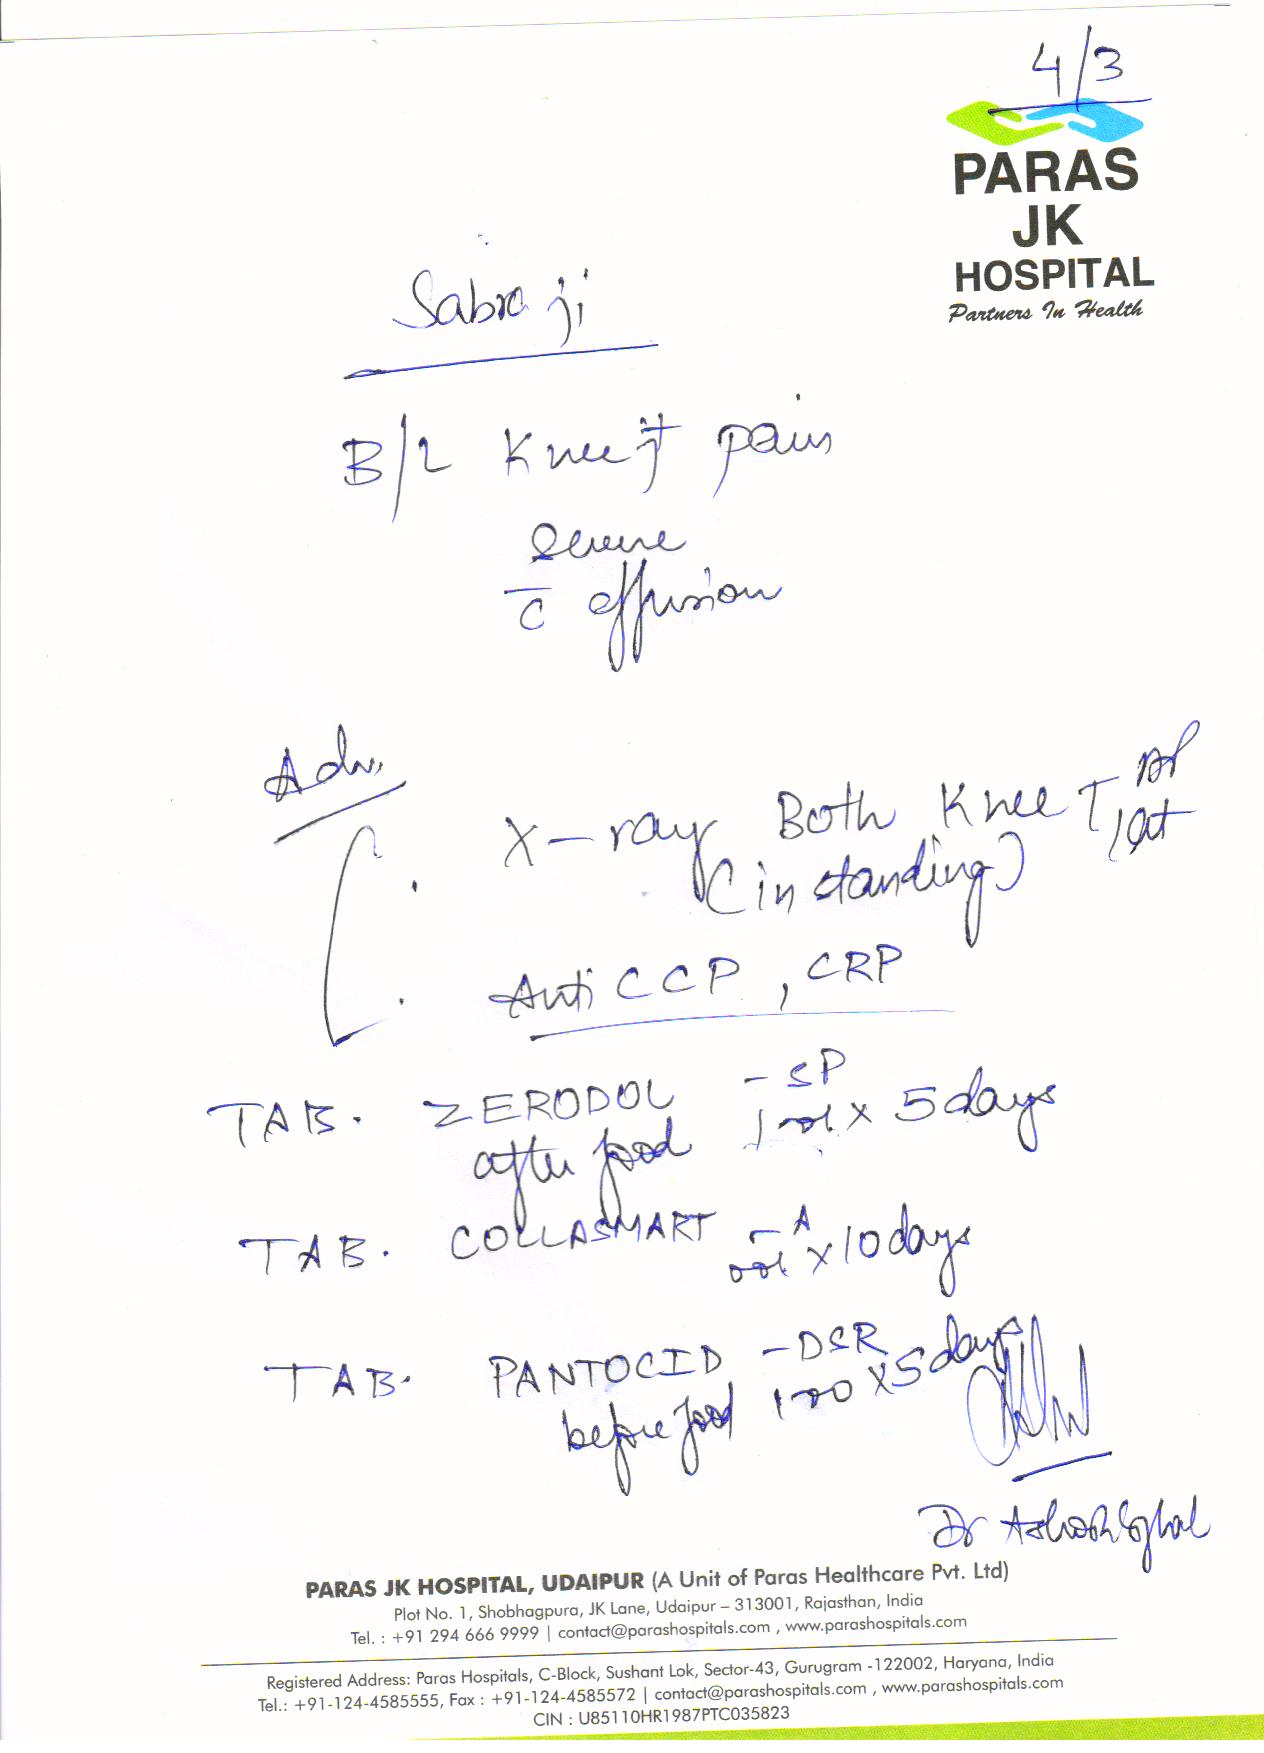 4/3
PARAS
JK
HOSPITAL
Partners In Health
Sabra ji
B/L Knee jt pain
severe
c effusion
Adv.
X-ray Both Knee AP
lat
(in standing)
Anti CCP, CRP
TAB. ZERODOL - SP
after food 1-0-1 x 5 days
TAB. COLLASMART - A
001 x 10 days
TAB. PANTOCID - DSR
before food 1-0-0 x 5 days
Dr Ashok
PARAS JK HOSPITAL, UDAIPUR (A Unit of Paras Healthcare Pvt. Ltd)
Plot No. 1, Shobhagpura, JK Lane, Udaipur – 313001, Rajasthan, India
Tel. : +91 294 666 9999 | contact@parashospitals.com , www.parashospitals.com
Registered Address: Paras Hospitals, C-Block, Sushant Lok, Sector-43, Gurugram -122002, Haryana, India
Tel.: +91-124-4585555, Fax : +91-124-4585572 | contact@parashospitals.com , www.parashospitals.com
CIN : U85110HR1987PTC035823